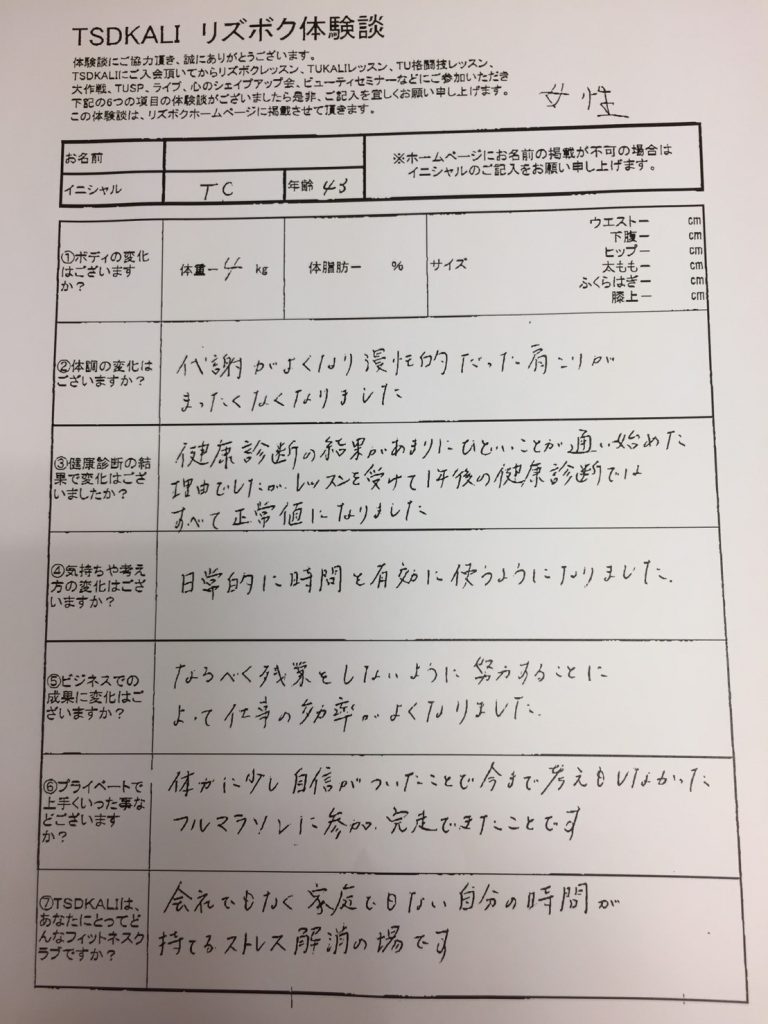 TSDKALI リズボク体験談
体験談にご協力頂き、誠にありがとうございます。
TSDKALIにご入会頂いてからリズボクレッスン、TUKALIレッスン、TU格闘技レッスン、
大作戦、TUSP、ライブ、心のシェイプアップ会、ビューティセミナーなどにご参加いただき
下記の6つの項目の体験談がございましたら是非、ご記入を宜しくお願い申し上げます。
この体験談は、リズボクホームページに掲載させて頂きます。
女性
お名前
※ホームページにお名前の掲載が不可の場合は
イニシャルのご記入をお願い申し上げます。
イニシャル TC 年齢 43
①ボディの変化
はございます
か?
体重ー4 kg
体脂肪ー %
サイズ
ウエストー cm
下腹ー cm
ヒップー cm
太ももー cm
ふくらはぎー cm
膝上ー cm
②体調の変化は
ございますか?
代謝がよくなり慢性的だった肩こりが
まったくなくなりました
③健康診断の結
果で変化はござ
いましたか?
健康診断の結果があまりにひどいことが通い始めた
理由でしたが、レッスンを受けて1年後の健康診断では
すべて正常値になりました
④気持ちや考え
方の変化はござ
いますか?
日常的に時間を有効に使うようになりました.
⑤ビジネスでの
成果に変化はご
ざいますか?
なるべく残業をしないように努力することに
よって仕事の効率がよくなりました.
⑥プライベートで
上手くいった事な
どございます
か?
体力に少し自信がついたことで今まで考えもしなかった
フルマラソンに参加、完走できたことです
⑦TSDKALIは、
あなたにとってど
んなフィットネスク
ラブですか?
会社でもなく家庭でもない自分の時間が
持てるストレス解消の場です